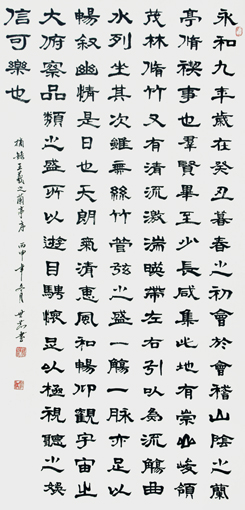 永和九年歲在癸丑暮春之初會於會稽山陰之蘭
亭脩禊事也羣賢畢至少長咸集此地有崇山峻領
茂林脩竹又有清流激湍暎帶左右引以為流觴曲
水列坐其次雖無絲竹管弦之盛一觴一詠亦足以
暢敘幽情是日也天朗氣清惠風和暢仰觀宇宙之
大俯察品類之盛所以遊目騁懷足以極視聽之娛
信可樂也
摘錄王羲之蘭亭序 丙申年 月 書